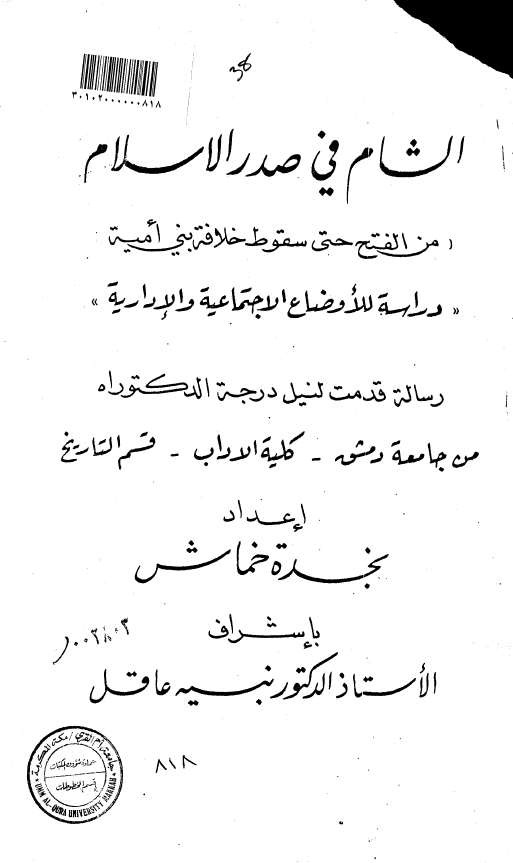 ٣٠١٠٢٠٠٠٠٠٠٨١٨
الشام في صدر الاسلام
من الفتح حتى سقوط خلافة بني أمية
« دراسة للأوضاع الاجتماعية والإدارية »
رسالة قدمت لنيل درجة الدكتوراه
من جامعة دمشق - كلية الاداب - قسم التاريخ
إعداد
نجدة خماش
بإشراف
الأستاذ الدكتور نبيه عاقل
٨١٨
جامعة أم القرى / مكة المكرمة
عمادة شؤون المكتبات
قسم المخطوطات
UMM AL-QURA UNIVERSITY MAKKAH